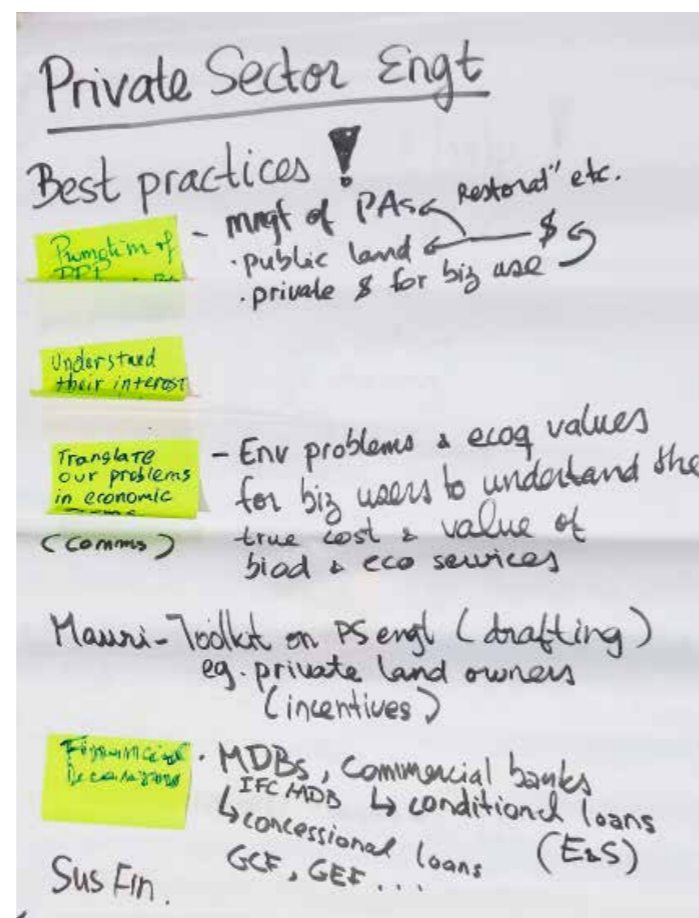 Private Sector Engt
Best practices !
Promotion of
- mngt of PAs Restorat° etc.
. public land $
. private $ for biz use
Understand
their interest
Translate
our problems
in economic
(comms)
- Env problems & values
for biz users to understand the
true cost & value of
biod & eco services
Mauri-Toolkit on PS engt (drafting)
eg. private land owners
(incentives)
Financial
. MDBs, commercial banks
IFC ↳ conditional loans
↳ concessional loans (E&S)
GCF, GEF ...
Sus Fin.